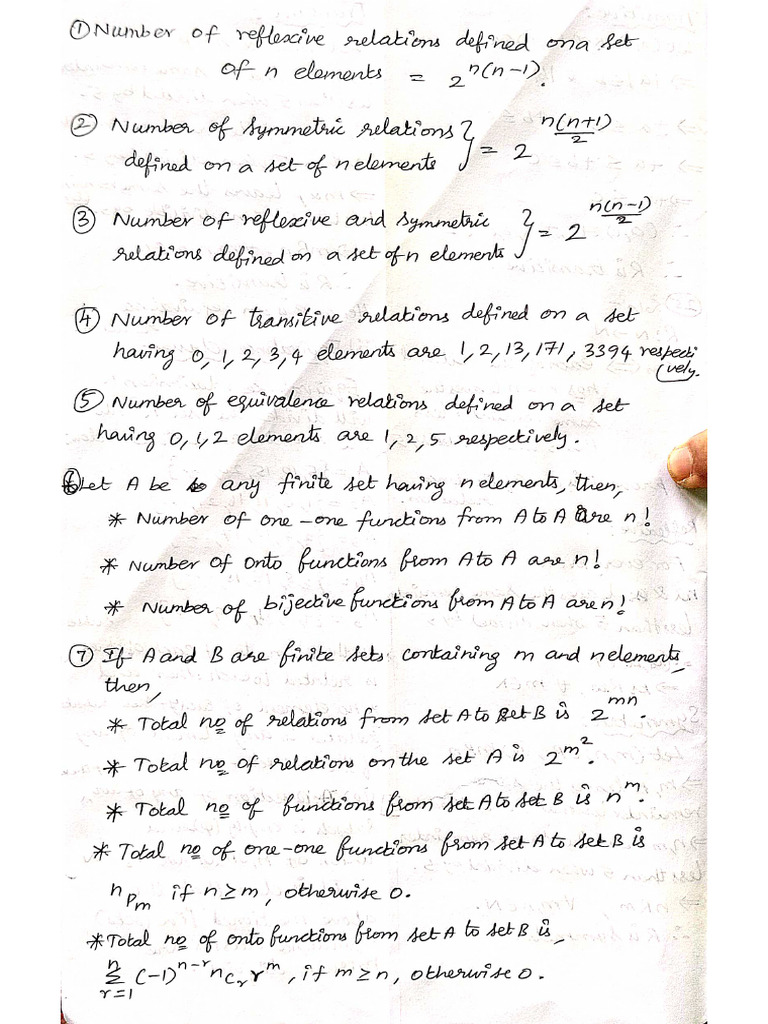 ① Number of reflexive relations defined on a set
of n elements = 2^{n(n-1)}.
② Number of symmetric relations
defined on a set of n elements } = 2^{\frac{n(n+1)}{2}}
③ Number of reflexive and symmetric
relations defined on a set of n elements } = 2^{\frac{n(n-1)}{2}}
④ Number of transitive relations defined on a set
having 0, 1, 2, 3, 4 elements are 1, 2, 13, 171, 3394 respecti
(vely.
⑤ Number of equivalence relations defined on a set
having 0, 1, 2 elements are 1, 2, 5 respectively.
⑥ Let A be any finite set having n elements, then,
* Number of one-one functions from A to A are n!
* Number of onto functions from A to A are n!
* Number of bijective functions from A to A are n!
⑦ If A and B are finite sets containing m and n elements,
then,
* Total no of relations from set A to set B is 2^{mn}.
* Total no of relations on the set A is 2^{m^2}.
* Total no of functions from set A to set B is n^m.
* Total no of one-one functions from set A to set B is
n_{P_m} if n ≥ m, otherwise 0.
* Total no of onto functions from set A to set B is,
\sum_{r=1}^{n} (-1)^{n-r} n_{C_r} r^m, if m ≥ n, otherwise 0.